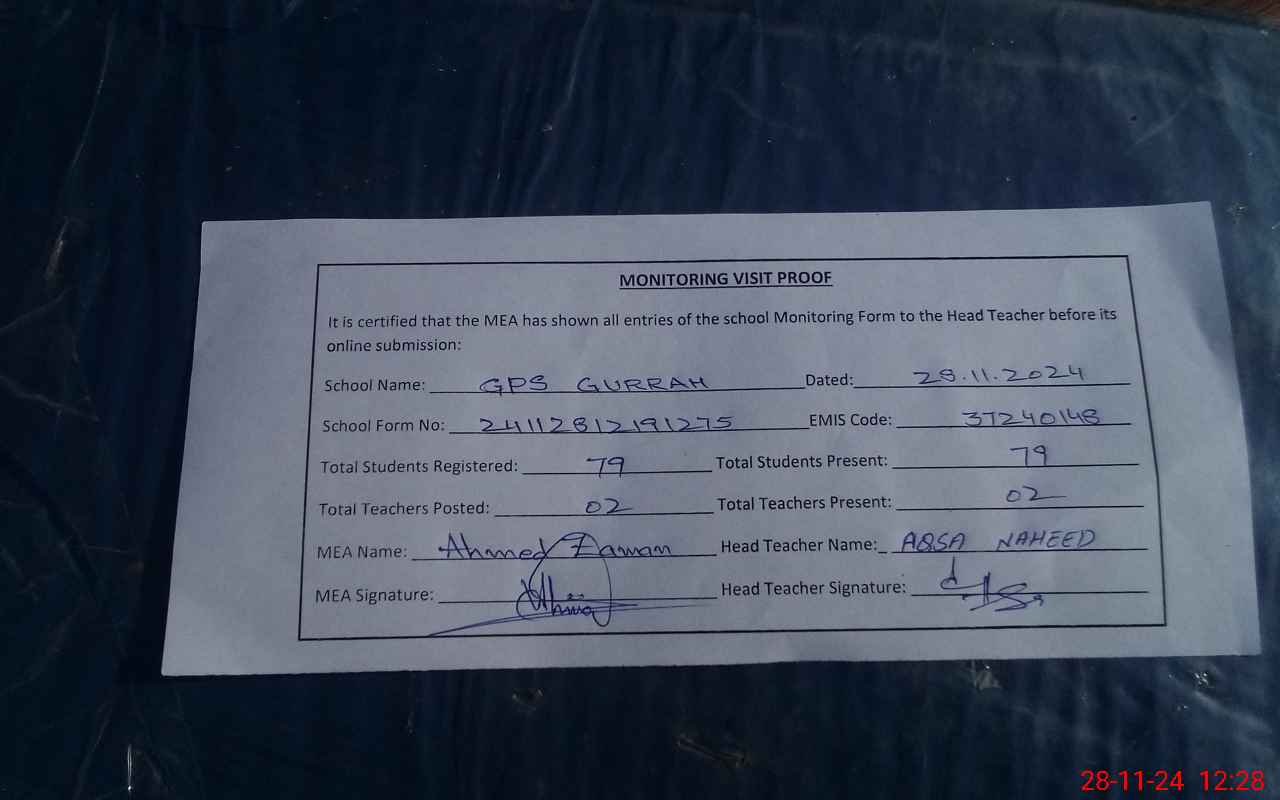 MONITORING VISIT PROOF
It is certified that the MEA has shown all entries of the school Monitoring Form to the Head Teacher before its
online submission:
School Name: GPS GURRAH Dated: 28.11.2024
School Form No: 24112812191275 EMIS Code: 37240148
Total Students Registered: 79 Total Students Present: 79
Total Teachers Posted: 02 Total Teachers Present: 02
MEA Name: Ahmed Zaman Head Teacher Name: AQSA NAHEED
MEA Signature: Head Teacher Signature:
28-11-24 12:28